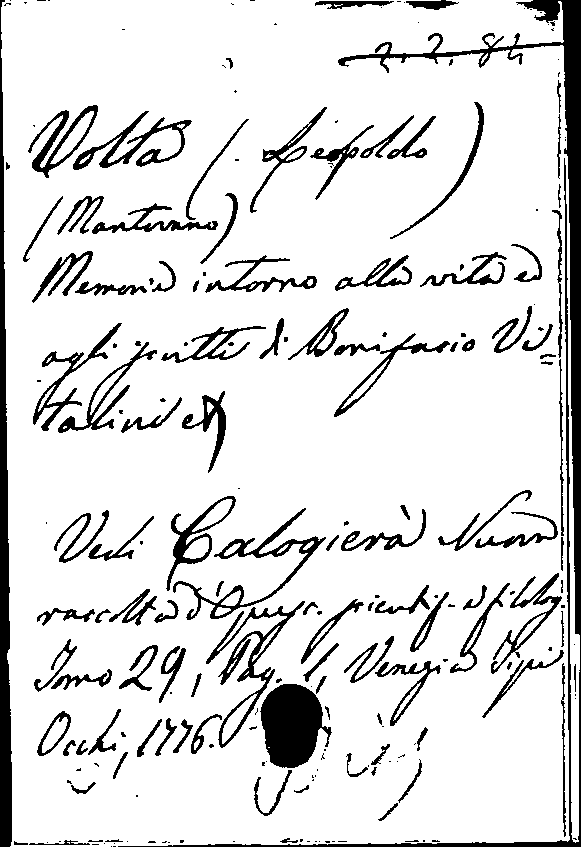 2. 2. 84
Volta (Leopoldo)
(Mantovano)
Memoria intorno alla vita ed
agli scritti di Bonifacio Vi=
talini
Vedi Calogierà Nuova
raccolta d'Opusc. scientif. e filolog.
Tomo 29, Pag. 1, Venezia Tipi
Occhi, 1776.